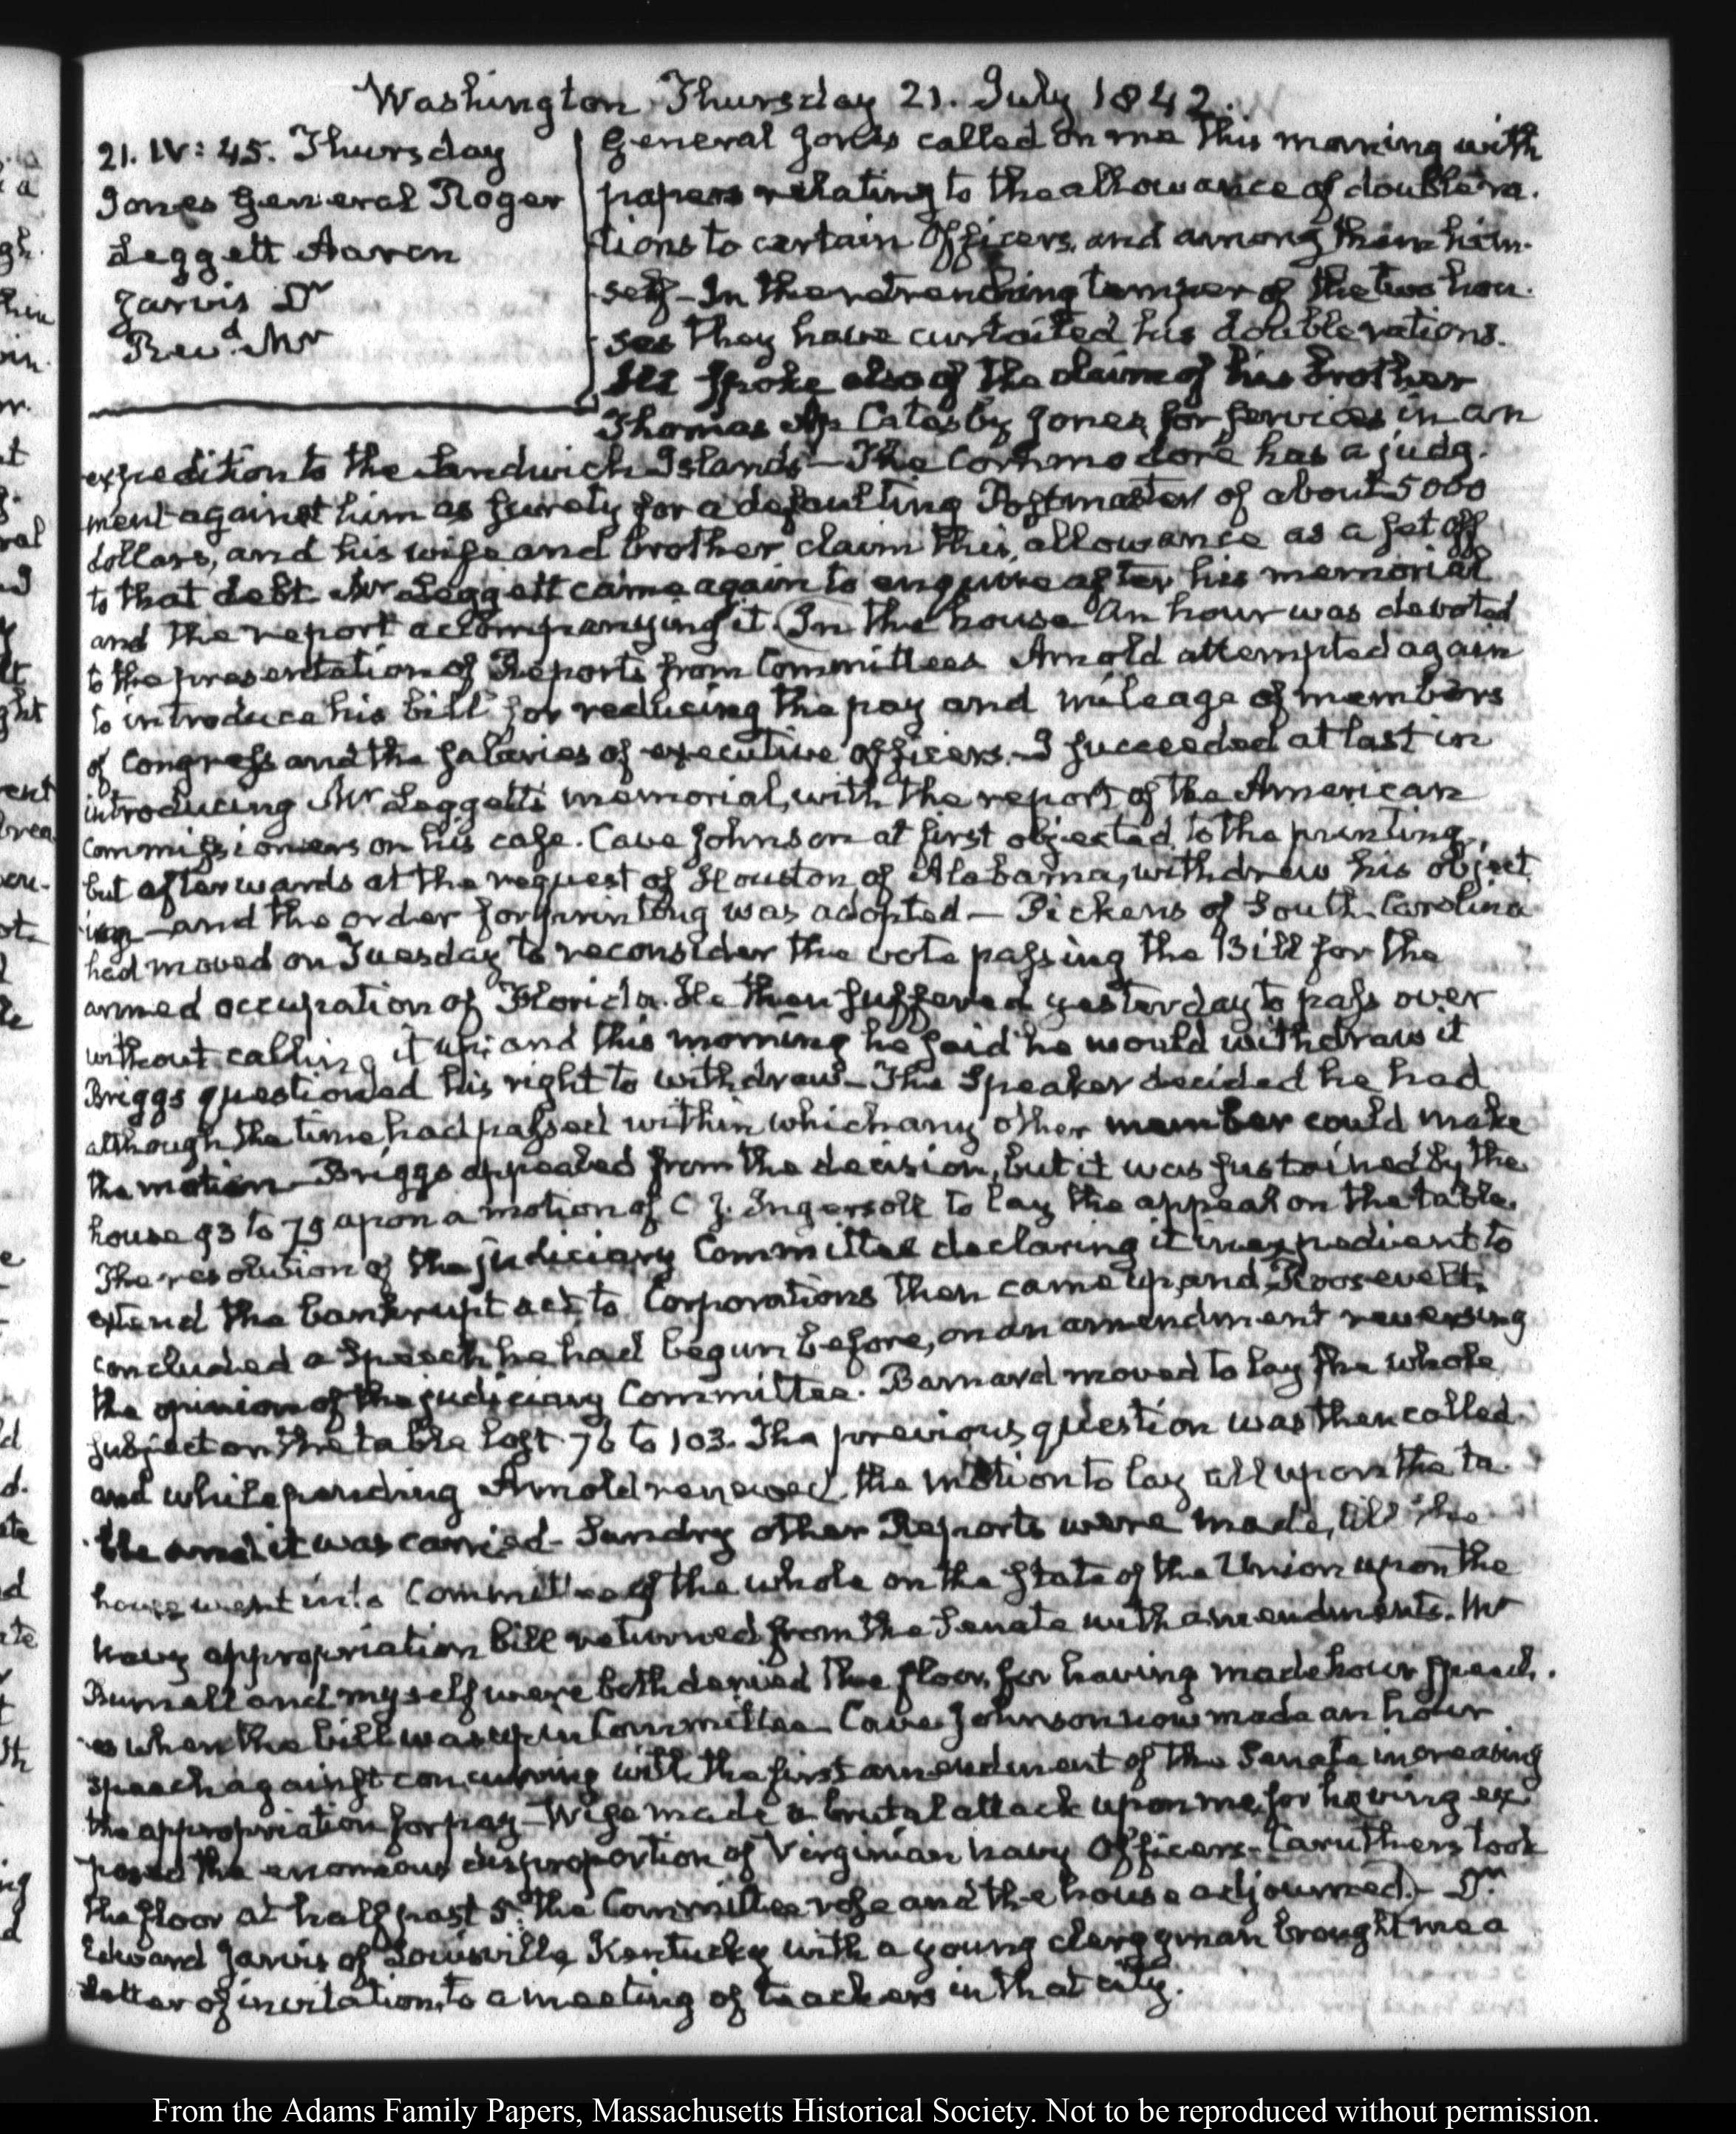 Washington Thursday 21. July 1842.
21. IV: 45. Thursday
Jones General Roger
Leggett Aaron
Jarvis Dr
Revd. Mr
General Jones called on me this morning with
papers relating to the allowance of double ra-
tions to certain Officers, and among them him-
self - In the retrenching temper of the two hou-
ses they have curtailed his double rations.
He spoke also of the claim of his brother
Thomas Ap Catesby Jones, for services in an
expedition to the Sandwich Islands - The Commodore has a judg-
ment against him as surety for a defaulting Postmaster of about 5000
dollars, and his wife and brother claim this allowance as a set off
to that debt. Mr Leggett came again to enquire after his memorial
and the report accompanying it. (In the house an hour was devoted
to the presentation of Reports from Committees Arnold attempted again
to introduce his bill for reducing the pay and mileage of members
of Congress and the salaries of executive officers. - I succeeded at last in
introducing Mr Leggett's memorial, with the report of the American
Commissioners on his case. Cave Johnson at first objected to the printing,
but afterwards at the request of Houston of Alabama, withdrew his object
ion - and the order for printing was adopted - Pickens of South Carolina
had moved on Tuesday to reconsider the vote passing the Bill for the
armed occupation of Florida. He then suffered yesterday to pass over
without calling it up; and this morning he said he would withdraw it
Briggs questioned his right to withdraw - The Speaker decided he had
although the time had passed within which any other member could make
the motion - Briggs appealed from the decision, but it was sustained by the
house 93 to 79 upon a motion of C. J. Ingersoll to lay the appeal on the table.
The resolution of the judiciary Committee declaring it inexpedient to
extend the bankrupt act to Corporations then came up, and Roosevelt
concluded a Speech he had begun before, on an amendment reversing
the opinion of the judiciary Committee. Barnard moved to lay the whole
subject on the table lost 76 to 103. The previous question was then called
and while pending Arnold renewed the motion to lay all upon the ta-
ble and it was carried - Sundry other Reports were made, till the
house went into Committee of the whole on the State of the Union upon the
navy appropriation bill returned from the Senate with amendments. Mr
Burnell and myself were both denied the floor, for having made hour speech-
es when the bill was up in Committee Cave Johnson now made an hour
speech against concurring with the first amendment of the Senate increasing
the appropriation for pay - Wise made a brutal attack upon me, for having ex-
posed the enormous disproportion of Virginian navy Officers - Caruthers took
the floor at half past 5. the Committee rose and the house adjourned.) - Dr.
Edward Jarvis of Louisville Kentucky with a young clergyman brought me a
letter of invitation, to a meeting of teachers in that city.
From the Adams Family Papers, Massachusetts Historical Society. Not to be reproduced without permission.